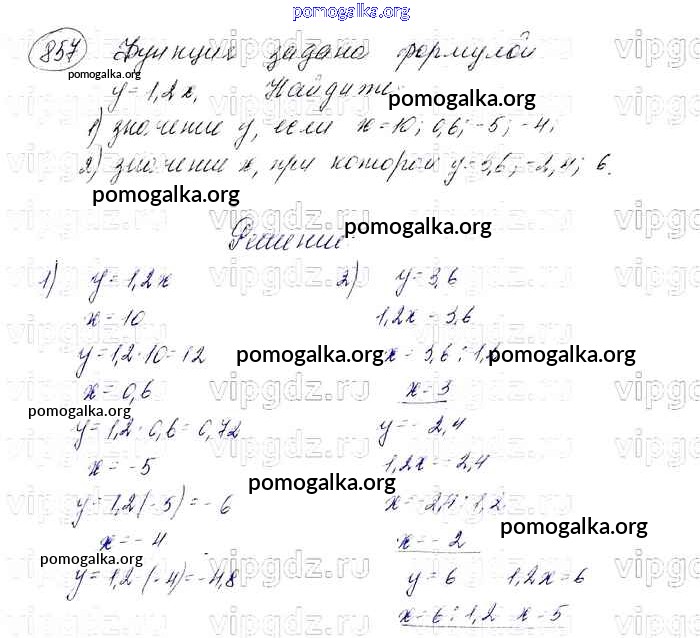 pomogalka.org
857 Функция задана формулой
pomogalka.org
y = 1,2x. Найдите:
pomogalka.org
1) значение y, если x = 10; 0,6; -5; -4;
2) значение x, при котором y = 3,6; -2,4; 6.
pomogalka.org
vipgdz.ru
pomogalka.org
Решение:
1) y = 1,2x
x = 10
y = 1,2 · 10 = 12
pomogalka.org
x = 0,6
pomogalka.org
y = 1,2 · 0,6 = 0,72
x = -5
pomogalka.org
y = 1,2 (-5) = -6
x = -4
pomogalka.org
y = 1,2 (-4) = -4,8
2) y = 3,6
1,2x = 3,6
x = 3,6 : 1,2
pomogalka.org
x = 3
y = -2,4
1,2x = -2,4
x = -2,4 : 1,2
pomogalka.org
x = -2
y = 6 1,2x = 6
x = 6 : 1,2 x = 5